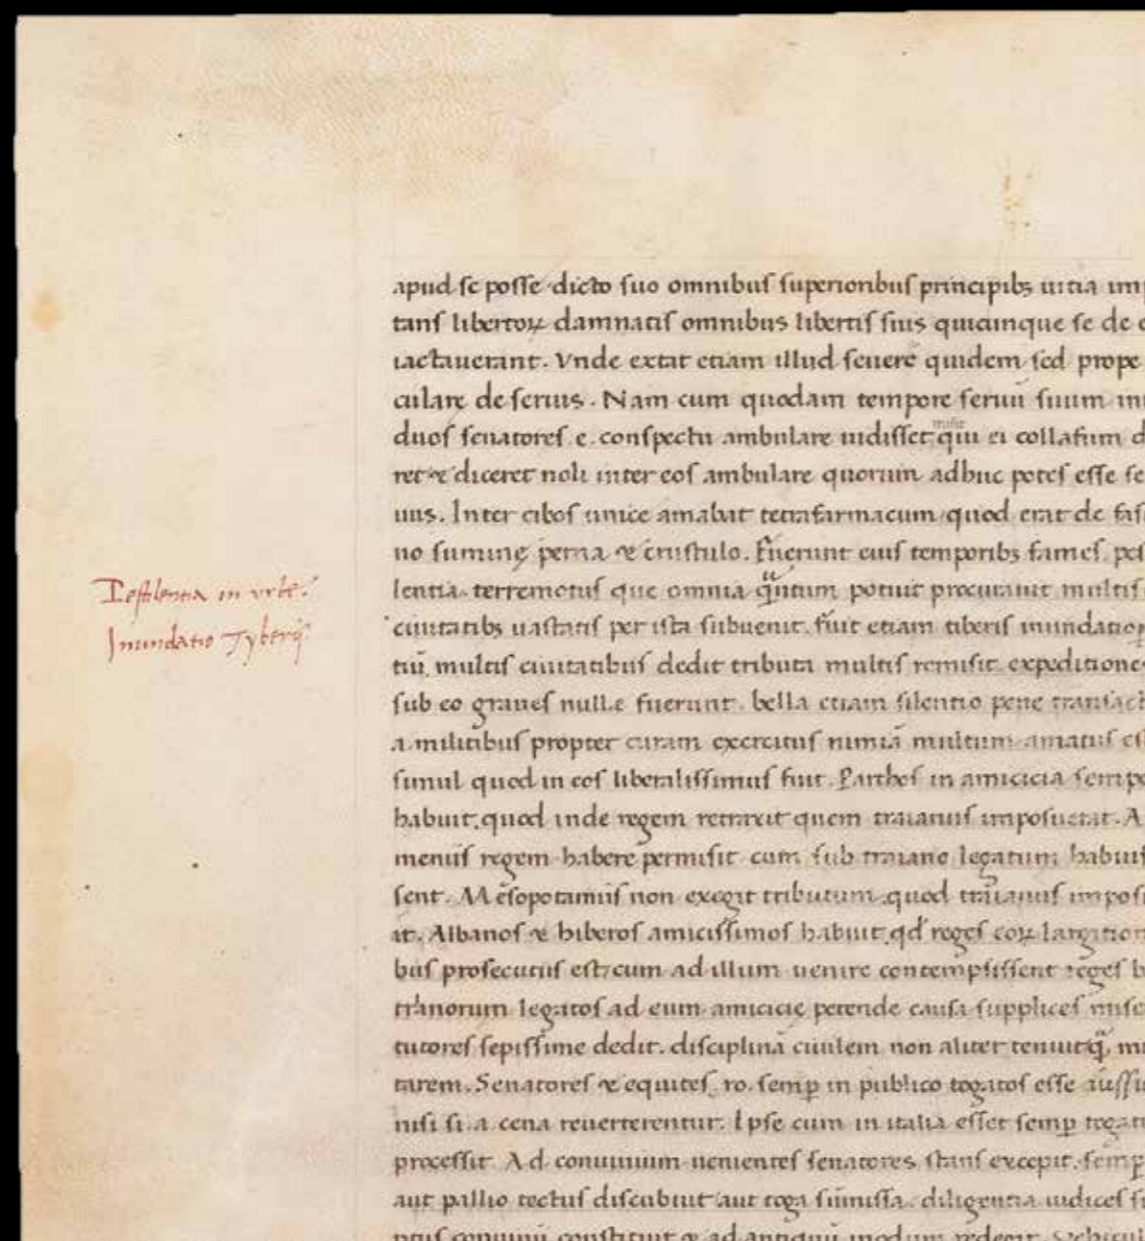 apud se posse dicto suo omnibus superioribus principibꝫ uitia imp
tans libertoꝝ damnatis omnibus libertis suis quicunque se de e
iactauerant. Vnde extat etiam illud seuere quidem sed prope
culare de seruis. Nam cum quodam tempore seruū suum int
duos senatores e conspectu ambulare uidisset misit qui ei collafum d
ret & diceret noli inter eos ambulare quorum adhuc potes esse se
uus. Inter cibos unice amabat tetrafarmacum quod erat de fas
no sumine perna & crustulo. Fuerunt eius temporibꝫ fames pes
Pestilentia in vrbe.
lentia terremotus que omnia q̄ntum potuit procurauit multis
Inundatio Tyberis
ciuitatibꝫ uastatis per ista subuenit. fuit etiam tiberis inundatio
tiū multis ciuitatibus dedit tributa multis remisit expeditiones
sub eo graues nulle fuerunt. bella etiam silentio pene transact
a militibus propter curam exercitus nimiā multum amatus es
simul quod in eos liberalissimus fuit. Parthos in amicicia sempe
habuit quod inde regem retraxit quem traianus imposuerat. A
menus regem habere permisit cum sub traiano legatum habuis
sent. Mesopotamus non exegit tributum quod traianus imposu
it. Albanos & hiberos amicissimos habuit qđ reges eoꝝ largition
bus prosecutus est cum ad illum uenire contempsissent reges b
tranorum legatos ad eum amicicie petende causa supplices mise
tutores sepissime dedit. disciplinā ciuilem non aliter tenuit q̄ mi
tarem. Senatores & equites ro. semꝑ in publico togatos esse iussi
nisi si a cena reuerterentur. Ipse cum in italia esset semꝑ togat
processit. Ad conuiuium uenientes senatores stans excepit semꝑ
aut pallio tectus discubuit aut toga sūmissa. diligentia iudices s
conuiuiū constituit & ad antiquū modum redegit.